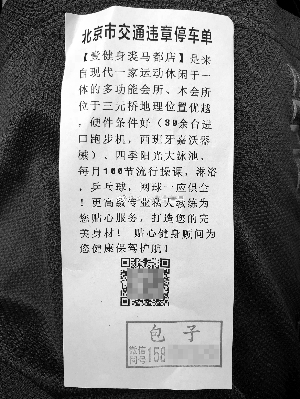 北京市交通违章停车单
【爱健身裘马都店】是来
自现代一家运动休闲于一
体的多功能会所、本会所
位于三元桥地理位置优越
，硬件条件好（80余台进
口跑步机，西班牙嘉沃器
械）、四季阳光大泳池、
每月160节流行操课，淋浴
、乒乓球，网球一应俱全
！更高端专业私人教练为
您贴心服务，打造您的完
美身材！贴心健身顾问为
您健康保驾护航！
包子
微信
同号 158